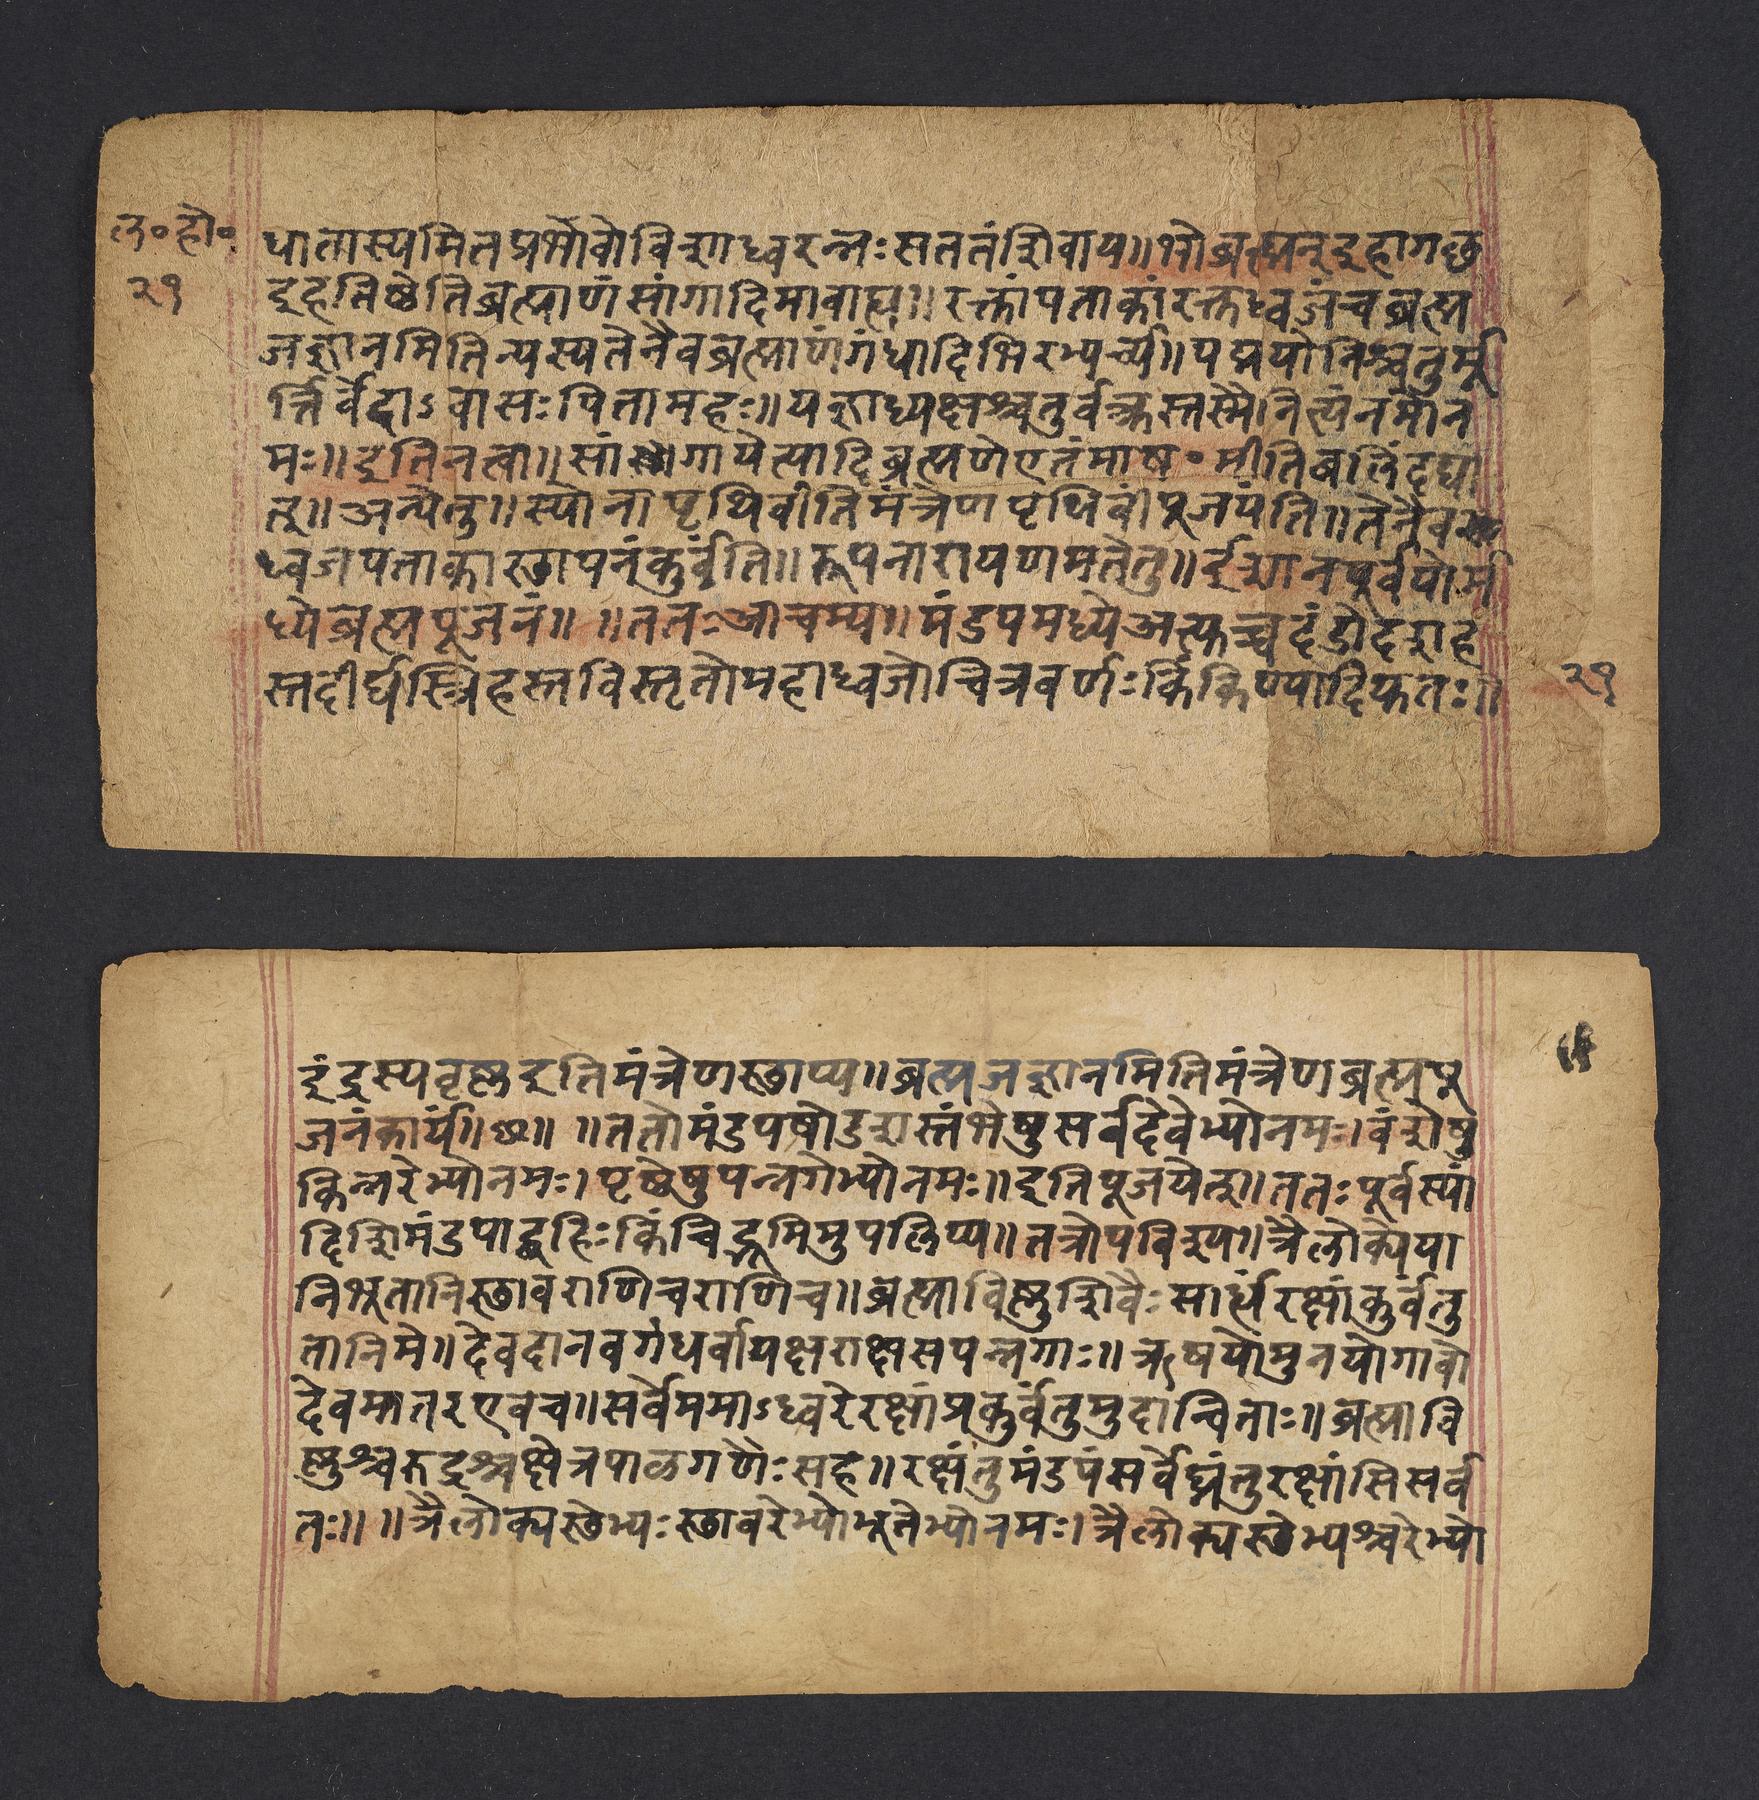 ल॰हो॰
२१
धातास्यमितप्रभोवोविशाध्वरन्नः सततंशिवाय॥ भोब्रह्मन्इहागछ
इहतिष्ठेतिब्रह्माणंसांगादिमावाह्य॥ रक्तांपताकांरक्तध्वजंचब्रह्म
जज्ञानमितिन्यस्यतेनैवब्रह्माणंगंधादिभिरभ्यर्च्य॥ पद्मयोनिश्चतुर्मू
र्त्तिर्वेदाऽवासः पितामहः॥ यज्ञाध्यक्षश्चतुर्वक्त्रस्तस्मै।नित्यंनमोन
मः॥ इतिनत्वा॥ सांगायेत्यादिब्रह्मणेएतंमाष॰मीतिबलिंदद्या
त्॥ अन्येतु॥ स्योनापृथिवीतिमंत्रेणपृथिवींपूजयंति॥ तेनैव
ध्वजपताकास्छापनंकुर्वंति॥ रूपनारायणमतेतु॥ ईशानपूर्वयोर्म
ध्येब्रह्मपूजनं॥ ॥ततःआचम्य॥ मंडपमध्येअत्युच्चदंडोदशह
स्तदीर्घस्त्रिहस्तविस्तृतोमहाध्वजोचित्रवर्णः किंकिण्यादियुतः॥
२१
इंद्रस्यवृष्ण इतिमंत्रेणस्छाप्य॥ ब्रह्मजज्ञानमितिमंत्रेणब्रह्मपू
जनंकार्यं॥ ॥ ॥ततोमंडपषोडशस्तंभेषुसर्वदेवेभ्योनमः।वंशेषु
किन्नरेभ्योनमः।पृष्ठेषुपन्नगेभ्योनमः॥ इतिपूजयेत्॥ ततः पूर्वस्यां
दिशिमंडपाद्बहिः किंचिद्भूमिमुपलिप्य॥ तत्रोपविश्य॥ त्रैलोक्येया
निभूतानिस्छावराणिचराणिच॥ ब्रह्माविष्णुशिवैः सार्धंरक्षांकुर्वंतु
तानिमे॥ देवदानवगंधर्वायक्षराक्षसपन्नगाः॥ ऋषयोमुनयोगावो
देवमातरएवच॥ सर्वेममाऽध्वरेरक्षांप्रकुर्वंतुमुदान्विताः॥ ब्रह्मावि
ष्णुश्चरुद्रश्चक्षेत्रपाळगणैः सह॥ रक्षंतुमंडपंसर्वेघ्नंतुरक्षांसिसर्व
तः॥ ॥त्रैलोक्यस्छेभ्यः स्छावरेभ्योभूतेभ्योनमः।त्रैलोक्यस्छेभ्यश्चरेभ्यो